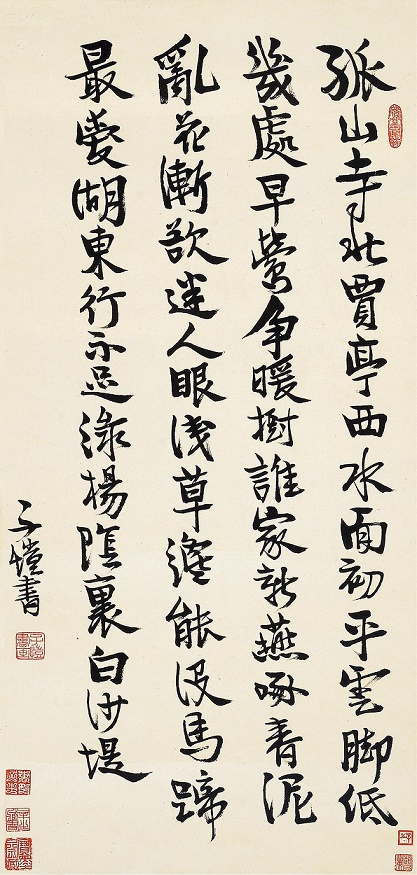 孤山寺北賈亭西水面初平雲脚低
幾處早鶯争暖樹誰家新燕啄青泥
亂花漸欲迷人眼淺草纔能没馬蹄
最愛湖東行不足綠楊陰裏白沙堤
子愷書